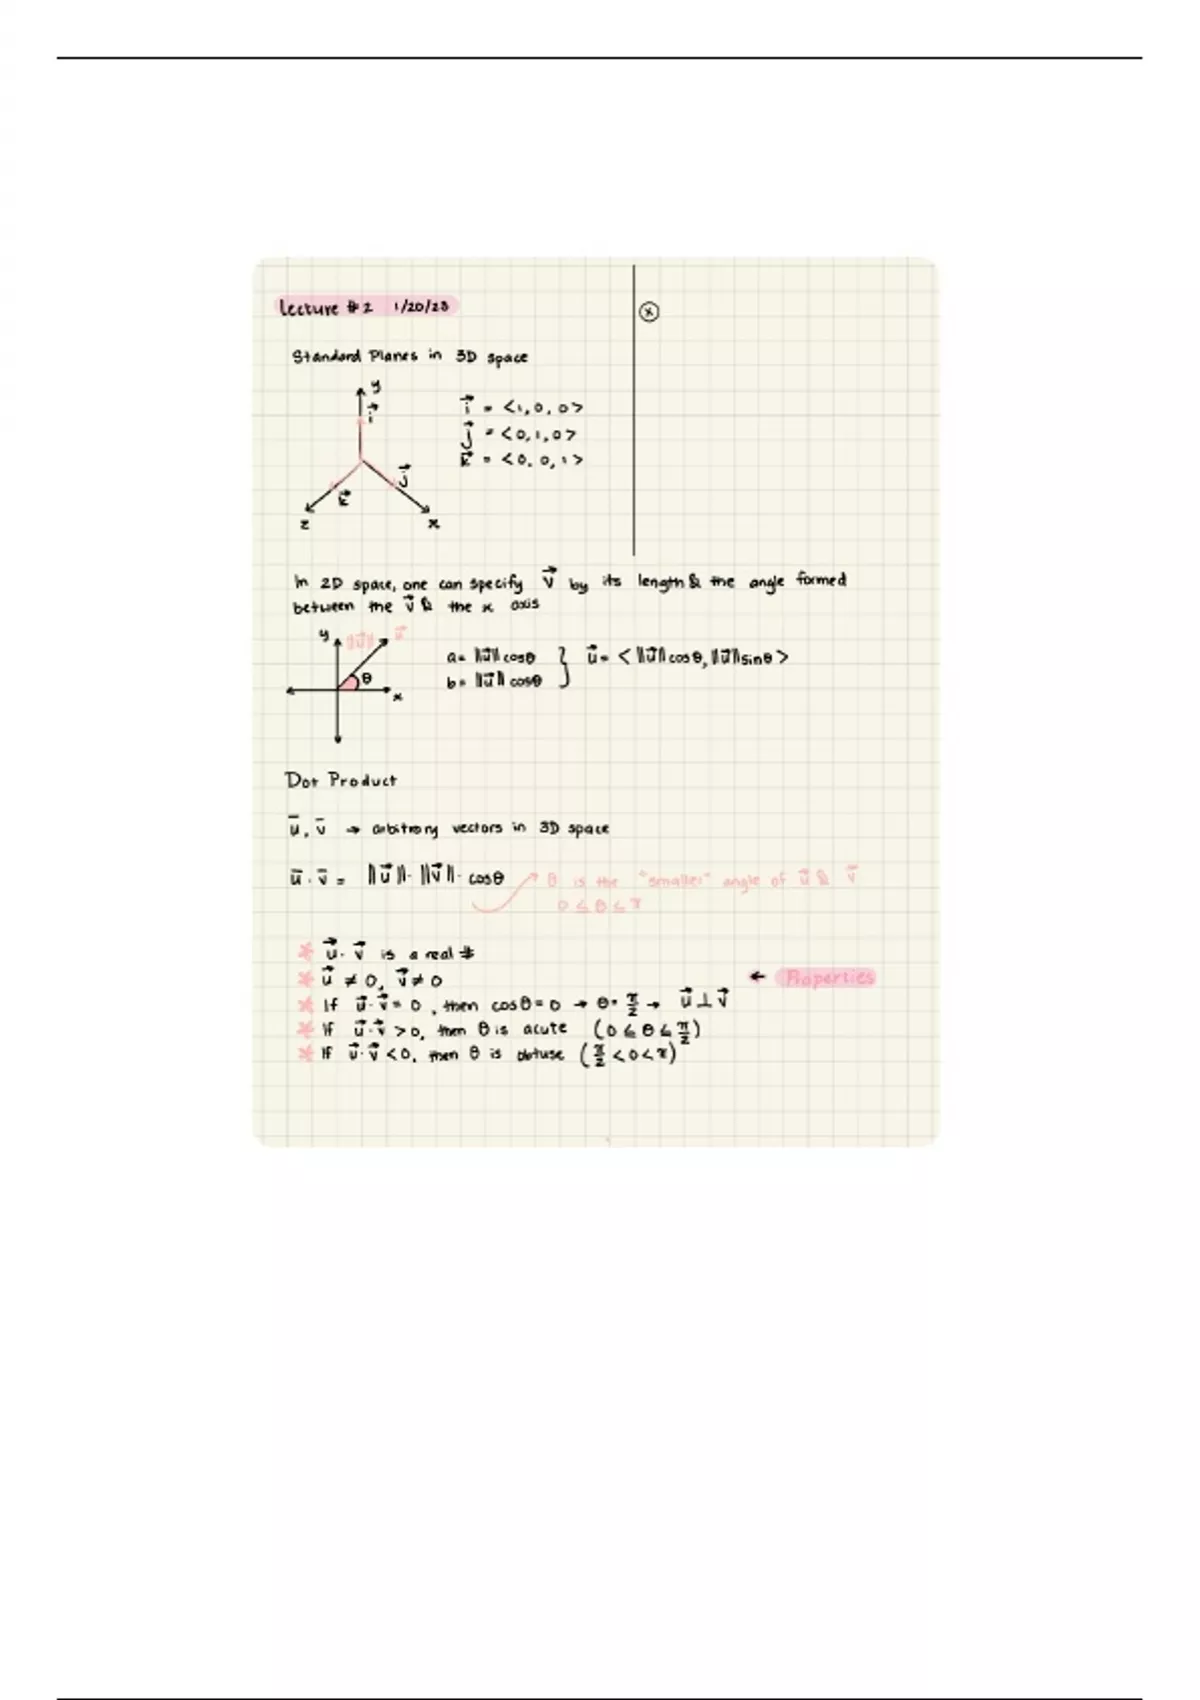 Lecture #2 1/20/23
ⓧ
Standard Planes in 3D space
y
i⃗
j⃗
k⃗
z
x
i⃗ = <1, 0, 0>
j⃗ = <0, 1, 0>
k⃗ = <0, 0, 1>
In 2D space, one can specify v⃗ by its length & the angle formed
between the v⃗ & the x axis
y ||u⃗|| u⃗
θ
x
a = ||u⃗|| cosθ
b = ||u⃗|| cosθ
u⃗ = <||u⃗|| cosθ, ||u⃗|| sinθ>
Dot Product
u̅, v̅ → arbitrary vectors in 3D space
u̅ · v̅ = ||u⃗|| · ||v⃗|| · cosθ
θ is the "smaller" angle of u⃗ & v⃗
0 ≤ θ ≤ π
* u⃗ · v⃗ is a real #
* u⃗ ≠ 0, v⃗ ≠ 0
← Properties
* If u⃗ · v⃗ = 0, then cosθ = 0 → θ = π/2 → u⃗ ⊥ v⃗
* If u⃗ · v⃗ > 0, then θ is acute (0 ≤ θ ≤ π/2)
* If u⃗ · v⃗ < 0, then θ is obtuse (π/2 < θ < π)